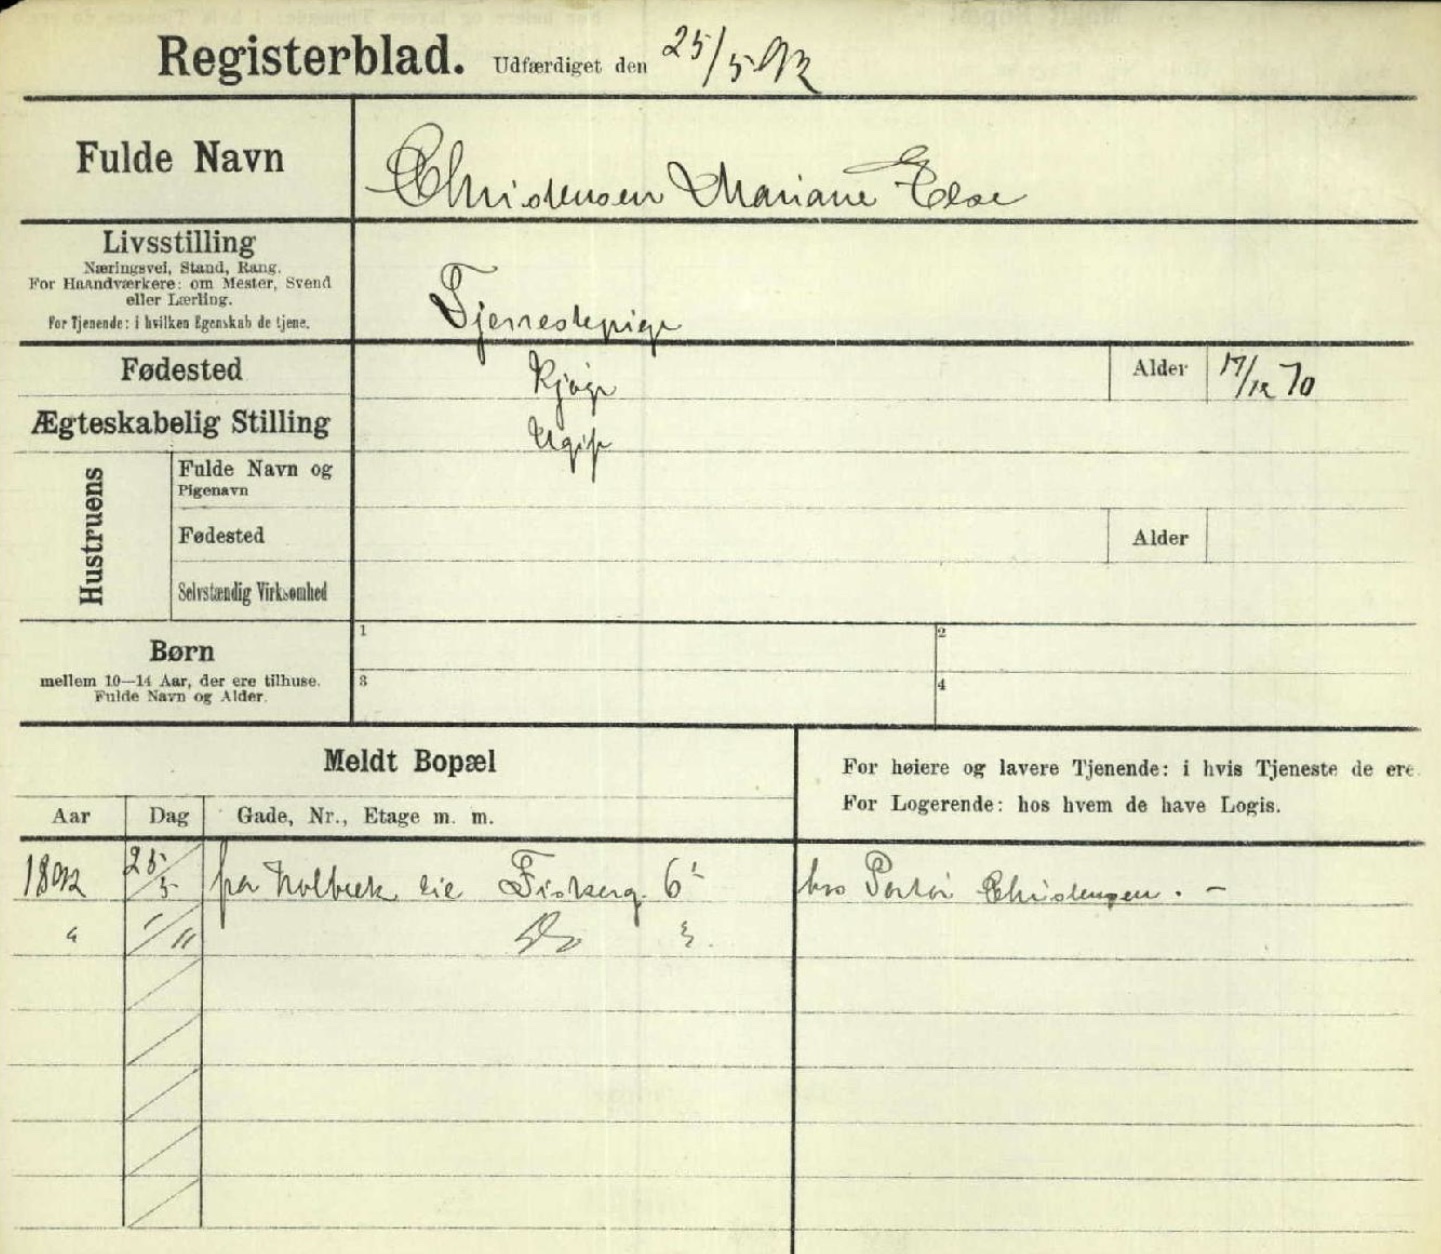 Registerblad. Udfærdiget den 25/5 92
Fulde Navn
Christensen Mariane Else
Livsstilling
Næringsvei, Stand, Rang.
For Haandværkere: om Mester, Svend
eller Lærling.
For Tjenende: i hvilken Egenskab de tjene.
Tjenestepige
Fødested
Kjøge
Alder
17/12 70
Ægteskabelig Stilling
Ugift
Hustruens
Fulde Navn og
Pigenavn
Fødested
Alder
Selvstændig Virksomhed
Børn
mellem 10—14 Aar, der ere tilhuse.
Fulde Navn og Alder.
1
2
3
4
Meldt Bopæl
For høiere og lavere Tjenende: i hvis Tjeneste de ere.
For Logerende: hos hvem de have Logis.
Aar Dag Gade, Nr., Etage m. m.
1892 25/5 fra Holbæk til Fiskerg. 6 hos Christensen. -
" 1/11 Do 3.